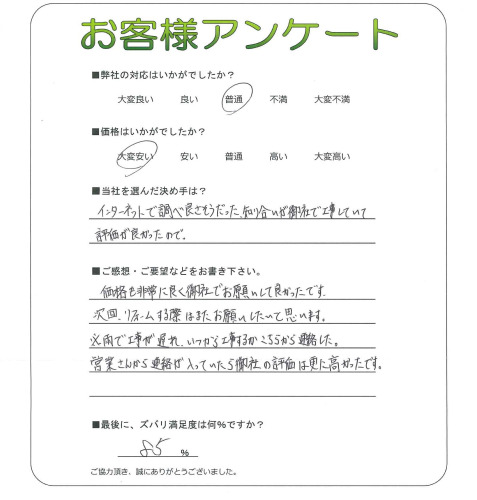 お客様アンケート
■弊社の対応はいかがでしたか？
大変良い 良い 普通 不満 大変不満
■価格はいかがでしたか？
大変安い 安い 普通 高い 大変高い
■当社を選んだ決め手は？
インターネットで調べ良さそうだった、知り合いが御社で工事していて
評価が良かったので。
■ご感想・ご要望などをお書き下さい。
価格も非常に良く御社でお願いして良かったです
次回、リフォームする際はまたお願いしたいて思います。
※雨で工事が遅れ、いつから工事するかこちらから連絡した。
営業さんから連絡が入っていたら御社の評価は更に高かったです。
■最後に、ズバリ満足度は何％ですか？
85 ％
ご協力頂き、誠にありがとうございました。